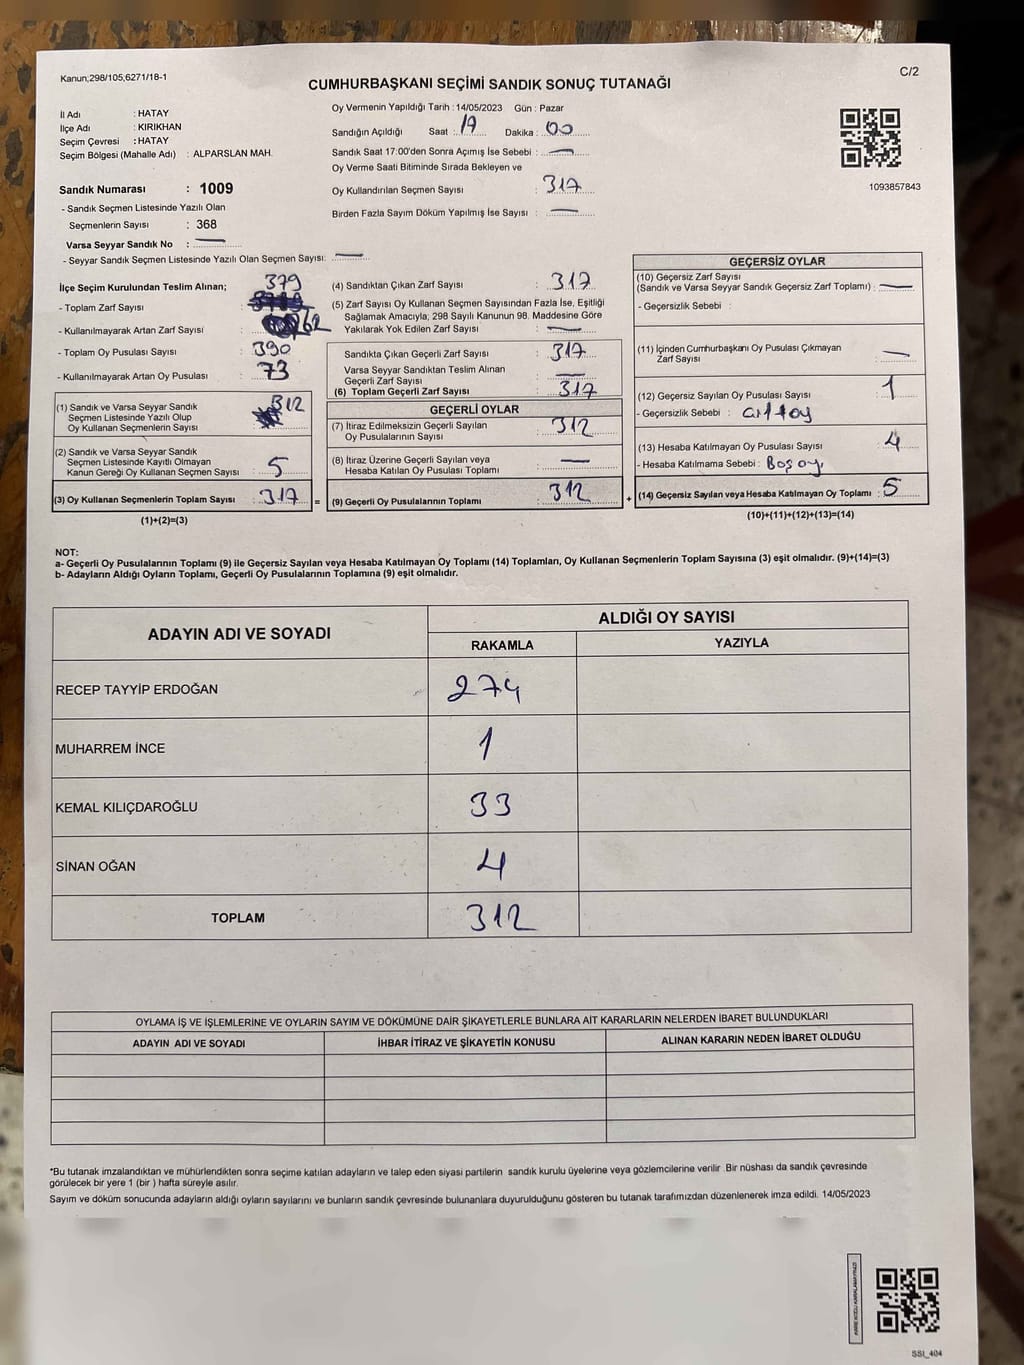 Kanun;298/105;6271/18-1
C/2
CUMHURBAŞKANI SEÇİMİ SANDIK SONUÇ TUTANAĞI
İl Adı : HATAY
İlçe Adı : KIRIKHAN
Seçim Çevresi : HATAY
Seçim Bölgesi (Mahalle Adı) : ALPARSLAN MAH.
Sandık Numarası : 1009
- Sandık Seçmen Listesinde Yazılı Olan
Seçmenlerin Sayısı : 368
Varsa Seyyar Sandık No : —
- Seyyar Sandık Seçmen Listesinde Yazılı Olan Seçmen Sayısı: —
Oy Vermenin Yapıldığı Tarih : 14/05/2023 Gün : Pazar
Sandığın Açıldığı Saat : 17 Dakika : 00
Sandık Saat 17:00'den Sonra Açımış İse Sebebi : —
Oy Verme Saati Bitiminde Sırada Bekleyen ve
Oy Kullandırılan Seçmen Sayısı : 317
Birden Fazla Sayım Döküm Yapılmış İse Sayısı : —
1093857843
İlçe Seçim Kurulundan Teslim Alınan;
- Toplam Zarf Sayısı : 379
- Kullanılmayarak Artan Zarf Sayısı : 62
- Toplam Oy Pusulası Sayısı : 390
- Kullanılmayarak Artan Oy Pusulası : 73
(1) Sandık ve Varsa Seyyar Sandık
Seçmen Listesinde Yazılı Olup
Oy Kullanan Seçmenlerin Sayısı : 312
(2) Sandık ve Varsa Seyyar Sandık
Seçmen Listesinde Kayıtlı Olmayan
Kanun Gereği Oy Kullanan Seçmen Sayısı : 5
(3) Oy Kullanan Seçmenlerin Toplam Sayısı : 317 =
(1)+(2)=(3)
(4) Sandıktan Çıkan Zarf Sayısı : 317
(5) Zarf Sayısı Oy Kullanan Seçmen Sayısından Fazla İse, Eşitliği
Sağlamak Amacıyla; 298 Sayılı Kanunun 98. Maddesine Göre
Yakılarak Yok Edilen Zarf Sayısı : —
Sandıkta Çıkan Geçerli Zarf Sayısı : 317
Varsa Seyyar Sandıktan Teslim Alınan
Geçerli Zarf Sayısı : —
(6) Toplam Geçerli Zarf Sayısı : 317
GEÇERLİ OYLAR
(7) İtiraz Edilmeksizin Geçerli Sayılan
Oy Pusulalarının Sayısı : 312
(8) İtiraz Üzerine Geçerli Sayılan veya
Hesaba Katılan Oy Pusulası Toplamı : —
(9) Geçerli Oy Pusulalarının Toplamı : 312 +
GEÇERSİZ OYLAR
(10) Geçersiz Zarf Sayısı
(Sandık ve Varsa Seyyar Sandık Geçersiz Zarf Toplamı) : —
- Geçersizlik Sebebi :
(11) İçinden Cumhurbaşkanı Oy Pusulası Çıkmayan
Zarf Sayısı : —
(12) Geçersiz Sayılan Oy Pusulası Sayısı : 1
- Geçersizlik Sebebi :
(13) Hesaba Katılmayan Oy Pusulası Sayısı : 4
- Hesaba Katılmama Sebebi : Boş oy
(14) Geçersiz Sayılan veya Hesaba Katılmayan Oy Toplamı : 5
(10)+(11)+(12)+(13)=(14)
NOT:
a- Geçerli Oy Pusulalarının Toplamı (9) ile Geçersiz Sayılan veya Hesaba Katılmayan Oy Toplamı (14) Toplamları, Oy Kullanan Seçmenlerin Toplam Sayısına (3) eşit olmalıdır. (9)+(14)=(3)
b- Adayların Aldığı Oyların Toplamı, Geçerli Oy Pusulalarının Toplamına (9) eşit olmalıdır.
ADAYIN ADI VE SOYADI
ALDIĞI OY SAYISI
RAKAMLA YAZIYLA
RECEP TAYYİP ERDOĞAN 274
MUHARREM İNCE 1
KEMAL KILIÇDAROĞLU 33
SİNAN OĞAN 4
TOPLAM 312
OYLAMA İŞ VE İŞLEMLERİNE VE OYLARIN SAYIM VE DÖKÜMÜNE DAİR ŞİKAYETLERLE BUNLARA AİT KARARLARIN NELERDEN İBARET BULUNDUKLARI
ADAYIN ADI VE SOYADI İHBAR İTİRAZ VE ŞİKAYETİN KONUSU ALINAN KARARIN NEDEN İBARET OLDUĞU
*Bu tutanak imzalandıktan ve mühürlendikten sonra seçime katılan adayların ve talep eden siyasi partilerin sandık kurulu üyelerine veya gözlemcilerine verilir. Bir nüshası da sandık çevresinde
görülecek bir yere 1 (bir ) hafta süreyle asılır.
Sayım ve döküm sonucunda adayların aldığı oyların sayılarını ve bunların sandık çevresinde bulunanlara duyurulduğunu gösteren bu tutanak tarafımızdan düzenlenerek imza edildi. 14/05/2023
SSI_404